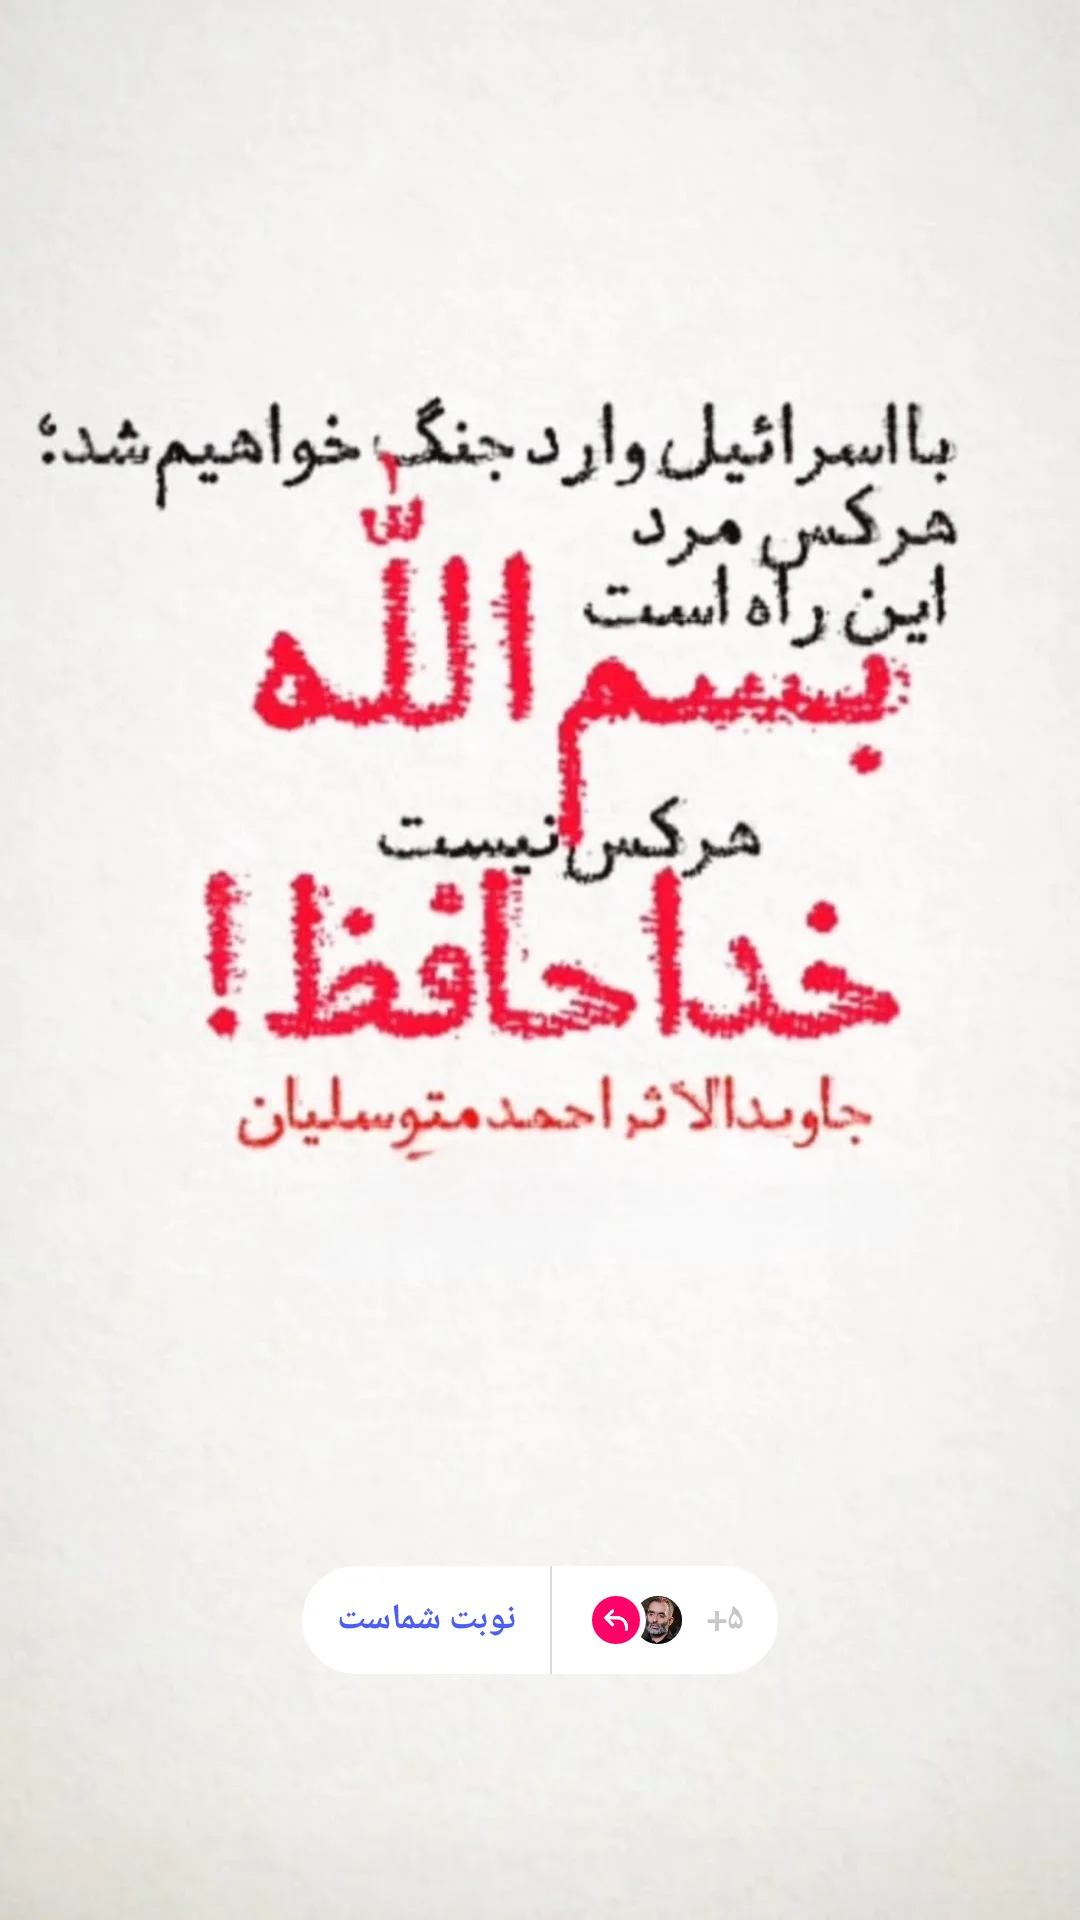 با اسرائیل وارد جنگ خواهیم شد؛
هرکس مرد
این راه است
بسم اللّٰه
هرکس نیست
خداحافظ!
جاویدالاثر احمد متوسلیان
نوبت شماست
+۵